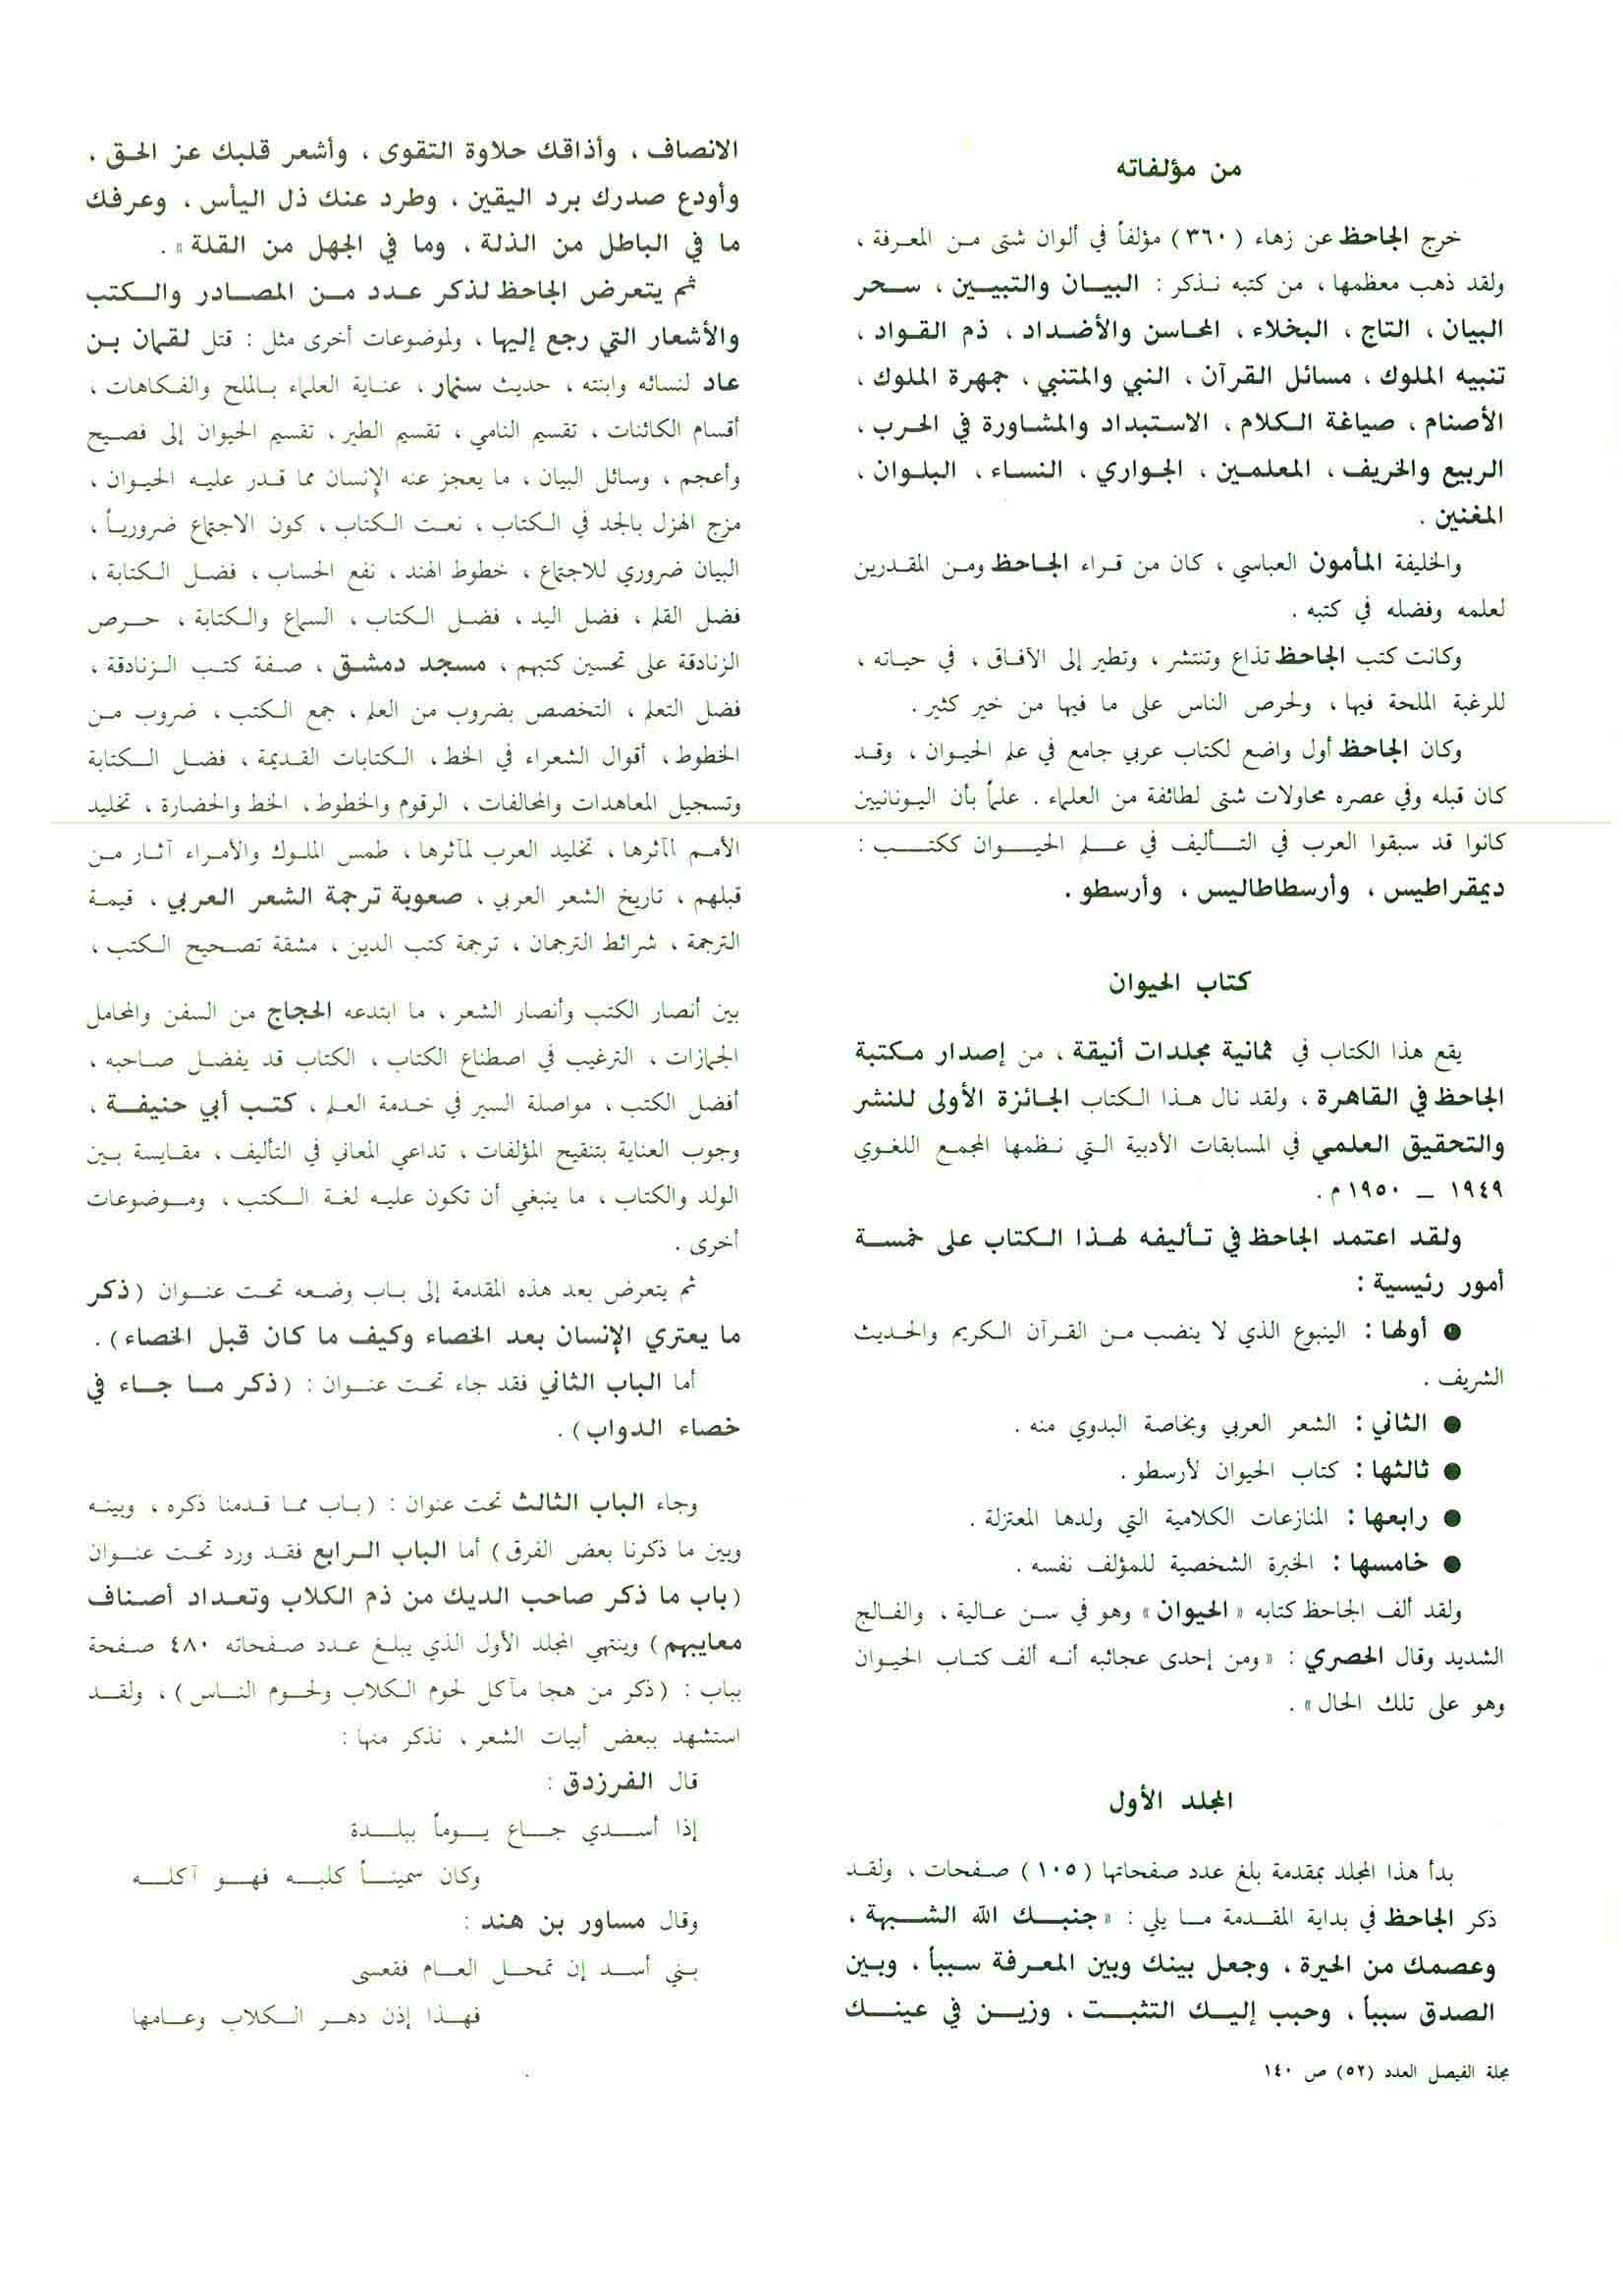 من مؤلفاته
خرج الجاحظ عن زهاء (٣٦٠) مؤلفاً في ألوان شتى من المعرفة ،
ولقد ذهب معظمها ، من كتبه نذكر : البيان والتبيين ، سحر
البيان ، التاج ، البخلاء ، المحاسن والأضداد ، ذم القواد ،
تنبيه الملوك ، مسائل القرآن ، النبي والمتنبي ، جمهرة الملوك ،
الأصنام ، صياغة الكلام ، الاستبداد والمشاورة في الحرب ،
الربيع والخريف ، المعلمين ، الجواري ، النساء ، البلوان ،
المغنين .
والخليفة المأمون العباسي ، كان من قراء الجاحظ ومن المقدرين
لعلمه وفضله في كتبه .
وكانت كتب الجاحظ تذاع وتنتشر ، وتطير إلى الآفاق ، في حياته ،
للرغبة الملحة فيها ، ولحرص الناس على ما فيها من خير كثير .
وكان الجاحظ أول واضع لكتاب عربي جامع في علم الحيوان ، وقد
كان قبله وفي عصره محاولات شتى لطائفة من العلماء . علماً بأن اليونانيين
كانوا قد سبقوا العرب في التأليف في علم الحيوان ككتب :
ديمقراطيس ، وأرسطاطاليس ، وأرسطو .
كتاب الحيوان
يقع هذا الكتاب في ثمانية مجلدات أنيقة ، من إصدار مكتبة
الجاحظ في القاهرة ، ولقد نال هذا الكتاب الجائزة الأولى للنشر
والتحقيق العلمي في المسابقات الأدبية التي نظمها المجمع اللغوي
١٩٤٩ – ١٩٥٠ م .
ولقد اعتمد الجاحظ في تأليفه لهذا الكتاب على خمسة
أمور رئيسية :
● أولها : الينبوع الذي لا ينضب من القرآن الكريم والحديث
الشريف .
● الثاني : الشعر العربي وبخاصة البدوي منه .
● ثالثها : كتاب الحيوان لأرسطو .
● رابعها : المنازعات الكلامية التي ولدها المعتزلة .
● خامسها : الخبرة الشخصية للمؤلف نفسه .
ولقد ألف الجاحظ كتابه «الحيوان» وهو في سن عالية ، والفالج
الشديد وقال الحصري : «ومن إحدى عجائبه أنه ألف كتاب الحيوان
وهو على تلك الحال» .
المجلد الأول
بدأ هذا المجلد بمقدمة بلغ عدد صفحاتها (١٠٥) صفحات ، ولقد
ذكر الجاحظ في بداية المقدمة ما يلي : «جنبك الله الشبهة ،
وعصمك من الحيرة ، وجعل بينك وبين المعرفة سبباً ، وبين
الصدق سبباً ، وحبب إليك التثبت ، وزين في عينك
الانصاف ، وأذاقك حلاوة التقوى ، وأشعر قلبك عز الحق ،
وأودع صدرك برد اليقين ، وطرد عنك ذل اليأس ، وعرفك
ما في الباطل من الذلة ، وما في الجهل من القلة» .
ثم يتعرض الجاحظ لذكر عدد من المصادر والكتب
والأشعار التي رجع إليها ، ولموضوعات أخرى مثل : قتل لقمان بن
عاد لنسائه وابنته ، حديث سنمار ، عناية العلماء بالملح والفكاهات ،
أقسام الكائنات ، تقسيم النامي ، تقسيم الطير ، تقسيم الحيوان إلى فصيح
وأعجم ، وسائل البيان ، ما يعجز عنه الإنسان مما قدر عليه الحيوان ،
مزج الهزل بالجد في الكتاب ، نعت الكتاب ، كون الاجتماع ضرورياً ،
البيان ضروري للاجتماع ، خطوط الهند ، نفع الحساب ، فضل الكتابة ،
فضل القلم ، فضل اليد ، فضل الكتاب ، السماع والكتابة ، حرص
الزنادقة على تحسين كتبهم ، مسجد دمشق ، صفة كتب الزنادقة ،
فضل التعلم ، التخصص بضروب من العلم ، جمع الكتب ، ضروب من
الخطوط ، أقوال الشعراء في الخط ، الكتابات القديمة ، فضل الكتابة
وتسجيل المعاهدات والمحالفات ، الرقوم والخطوط ، الخط والحضارة ، تخليد
الأمم لمآثرها ، تخليد العرب لمآثرها ، طمس الملوك والأمراء آثار من
قبلهم ، تاريخ الشعر العربي ، صعوبة ترجمة الشعر العربي ، قيمة
الترجمة ، شرائط الترجمان ، ترجمة كتب الدين ، مشقة تصحيح الكتب ،
بين أنصار الكتب وأنصار الشعر ، ما ابتدعه الحجاج من السفن والمحامل
الجمازات ، الترغيب في اصطناع الكتاب ، الكتاب قد يفضل صاحبه ،
أفضل الكتب ، مواصلة السير في خدمة العلم ، كتب أبي حنيفة ،
وجوب العناية بتنقيح المؤلفات ، تداعي المعاني في التأليف ، مقايسة بين
الولد والكتاب ، ما ينبغي أن تكون عليه لغة الكتب ، وموضوعات
أخرى .
ثم يتعرض بعد هذه المقدمة إلى باب وضعه تحت عنوان (ذكر
ما يعتري الإنسان بعد الخصاء وكيف ما كان قبل الخصاء) .
أما الباب الثاني فقد جاء تحت عنوان : (ذكر ما جاء في
خصاء الدواب) .
وجاء الباب الثالث تحت عنوان : (باب مما قدمنا ذكره ، وبينه
وبين ما ذكرنا بعض الفرق) أما الباب الرابع فقد ورد تحت عنوان
(باب ما ذكر صاحب الديك من ذم الكلاب وتعداد أصناف
معايبهم) وينتهي المجلد الأول الذي يبلغ عدد صفحاته ٤٨٠ صفحة
بباب : (ذكر من هجا مآكل لحوم الكلاب ولحوم الناس) ، ولقد
استشهد ببعض أبيات الشعر ، نذكر منها :
قال الفرزدق :
إذا أسدي جاع يوماً ببلدة
وكان سميناً كلبه فهو آكله
وقال مساور بن هند :
بني أسد إن تمحل العام فقعسى
فهذا إذن دهر الكلاب وعامها
مجلة الفيصل العدد (٥٢) ص ١٤٠